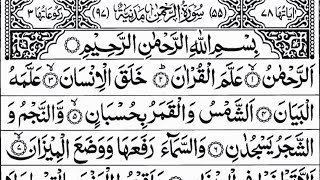 اٰیَاتُهَا ٧٨ (٥٥) سُوْرَةُ الرَّحْمٰنِ مَدَنِیَّةٌ (٩٧) رُكُوْعَاتُهَا ٣
بِسْمِ اللّٰهِ الرَّحْمٰنِ الرَّحِیْمِ
اَلرَّحْمٰنُ ۙ‏ ١ عَلَّمَ الْقُرْاٰنَ ؕ‏ ٢ خَلَقَ الْاِنْسَانَ ۙ‏ ٣ عَلَّمَهُ
الْبَیَانَ ٤ اَلشَّمْسُ وَ الْقَمَرُ بِحُسْبَانٍ ٥ وَّ النَّجْمُ وَ
الشَّجَرُ یَسْجُدٰنِ ٦ وَ السَّمَآءَ رَفَعَهَا وَ وَضَعَ الْمِیْزَانَ ٧